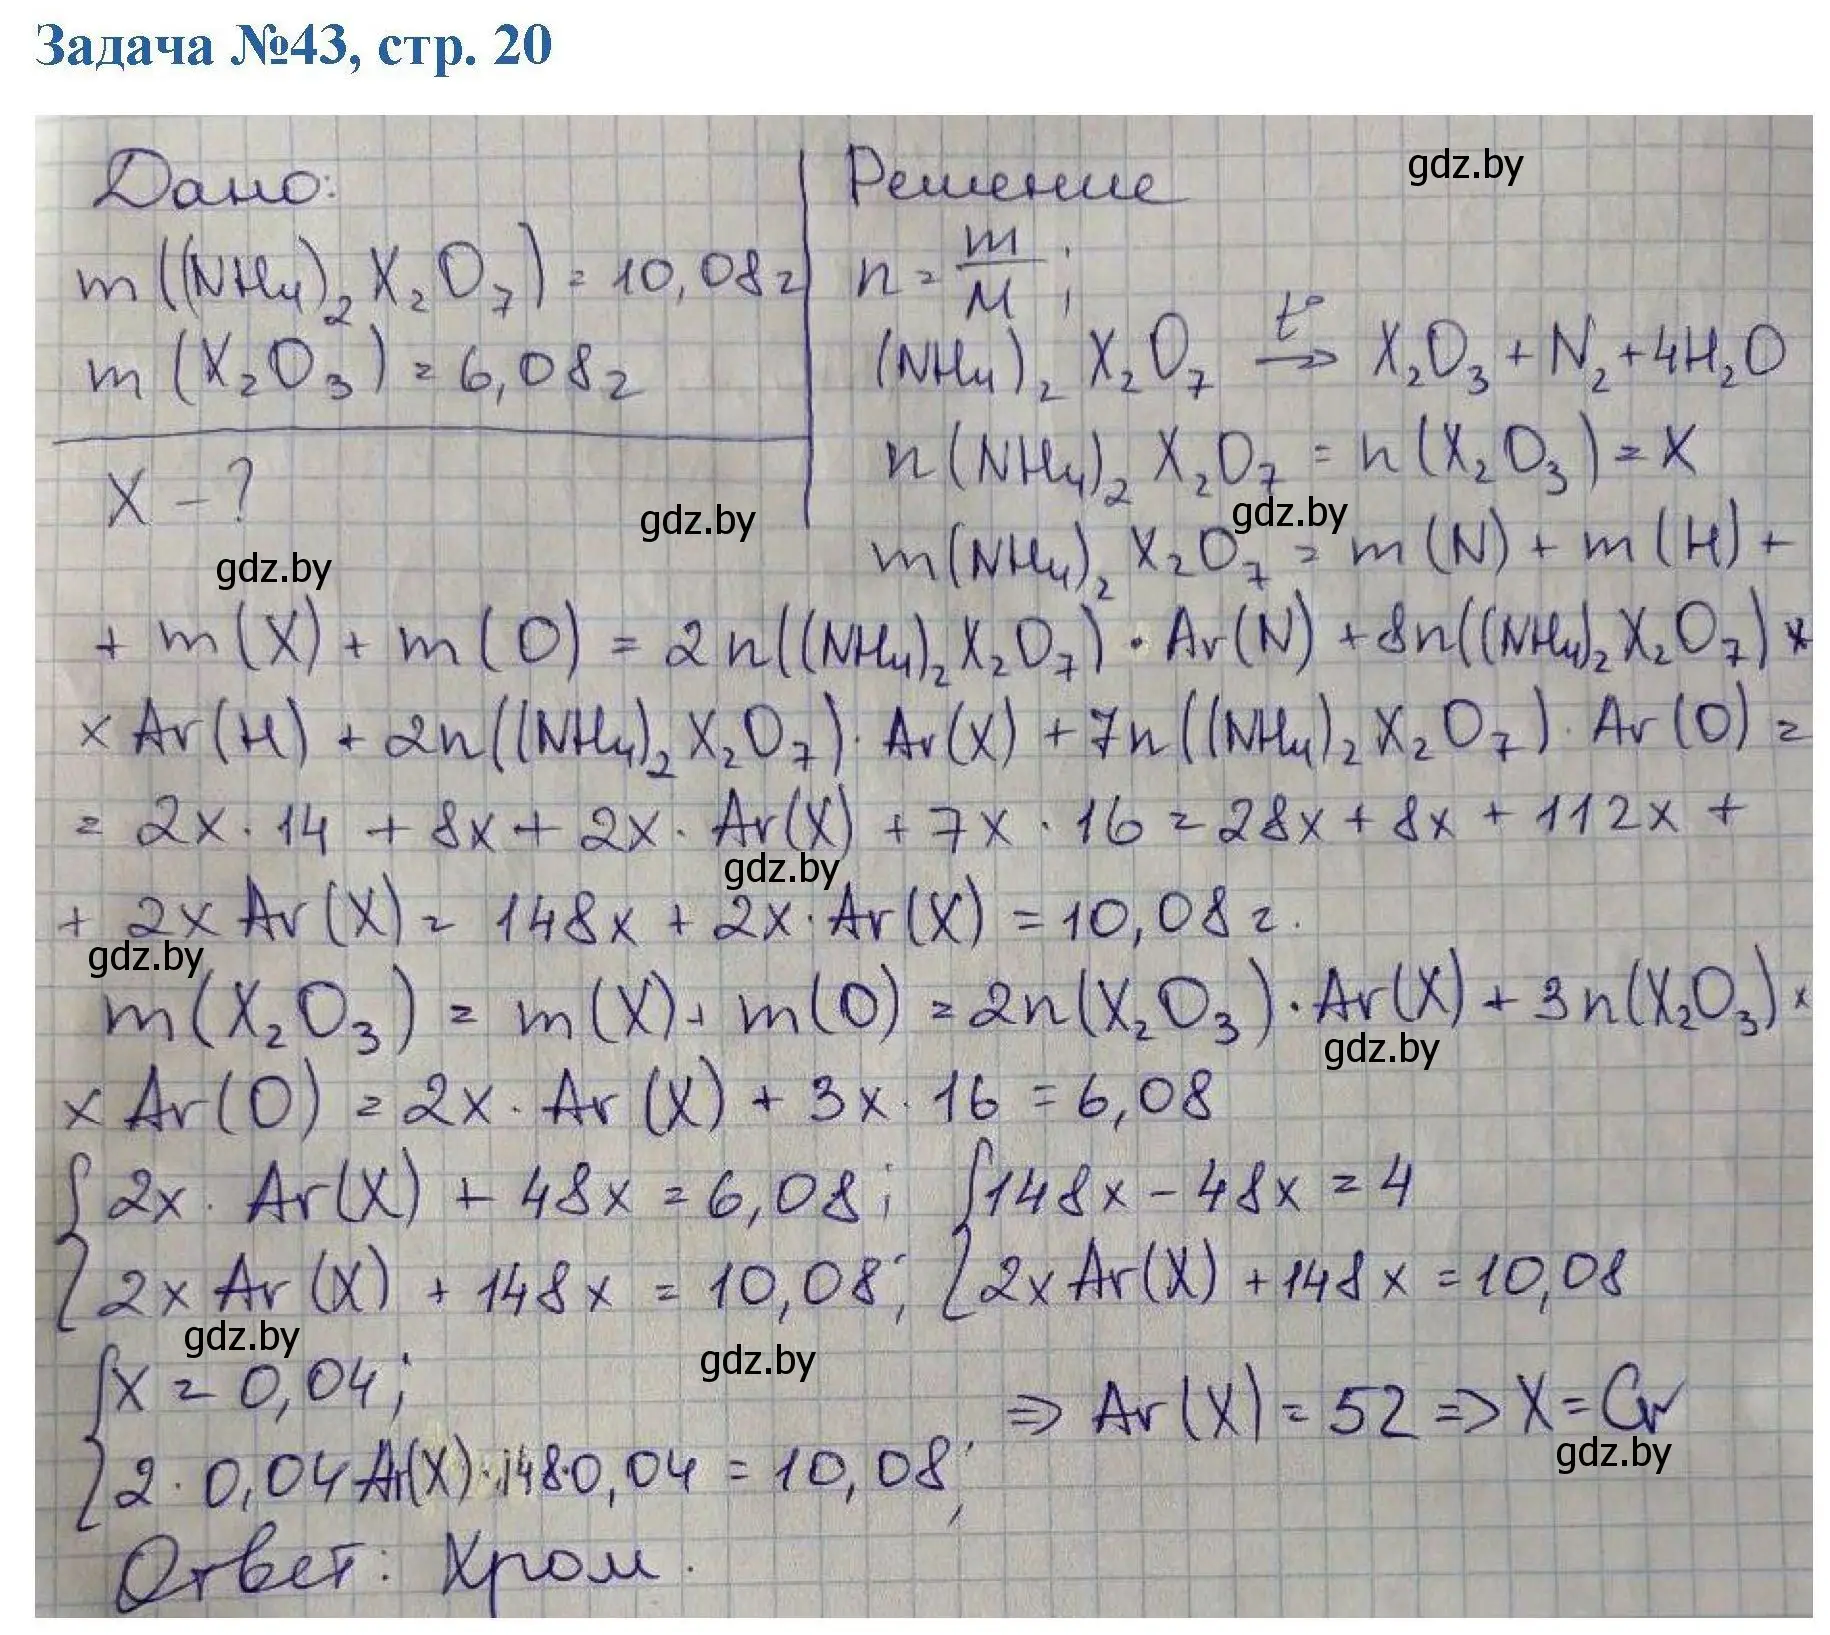 Задача №43, стр. 20
Дано:
m((NH₄)₂X₂O₇) = 10,08г
m(X₂O₃) = 6,08г
X - ?
Решение
n = m/M;
(NH₄)₂X₂O₇ →t° X₂O₃ + N₂ + 4H₂O
n(NH₄)₂X₂O₇ = n(X₂O₃) = X
m(NH₄)₂X₂O₇ = m(N) + m(H) +
+ m(X) + m(O) = 2n((NH₄)₂X₂O₇) · Ar(N) + 8n((NH₄)₂X₂O₇) ×
× Ar(H) + 2n((NH₄)₂X₂O₇) · Ar(X) + 7n((NH₄)₂X₂O₇) · Ar(O) =
= 2x · 14 + 8x + 2x · Ar(X) + 7x · 16 = 28x + 8x + 112x +
+ 2x Ar(X) = 148x + 2x · Ar(X) = 10,08г.
m(X₂O₃) = m(X) + m(O) = 2n(X₂O₃) · Ar(X) + 3n(X₂O₃) ×
× Ar(O) = 2x · Ar(X) + 3x · 16 = 6,08
{ 2x · Ar(X) + 48x = 6,08; { 148x - 48x = 4
2x Ar(X) + 148x = 10,08; 2x Ar(X) + 148x = 10,08
{ x = 0,04;
2 · 0,04 Ar(X) · 148·0,04 = 10,08; ⇒ Ar(X) = 52 ⇒ X = Cr
Ответ: Хром.
gdz.by
gdz.by
gdz.by
gdz.by
gdz.by
gdz.by
gdz.by
gdz.by
gdz.by
gdz.by